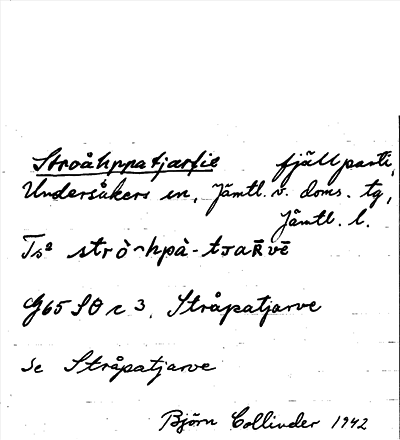 Stroåhppatjarfie fjällparti,
Undersåkers sn, Jämtl. v. doms. tg,
Jämtl. l.
Ts² strò-hpà-tjaR̄vē
G65 SO c 3. Stråpatjarve
Se Stråpatjarve
Björn Collinder 1942